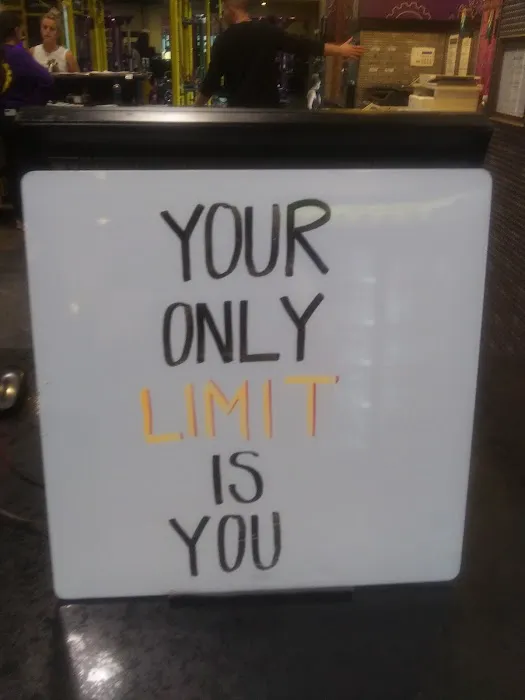 YOUR
ONLY
LIMIT
IS
YOU